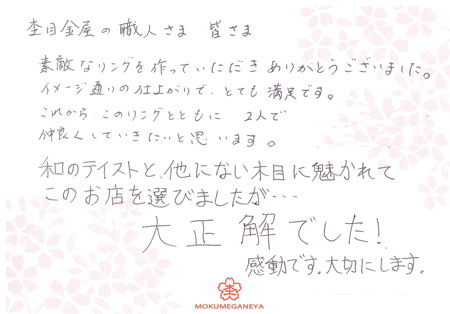 杢目金屋の職人さま 皆さま
素敵なリングを作っていただきありがとうございました。
イメージ通りの仕上がりで、とても満足です。
これから、このリングとともに 2人で
仲良くしていきたいと思います。
和のテイストと、他にない木目に魅かれて
このお店を選びましたが…
大正解でした!
感動です。大切にします。
MOKUMEGANEYA